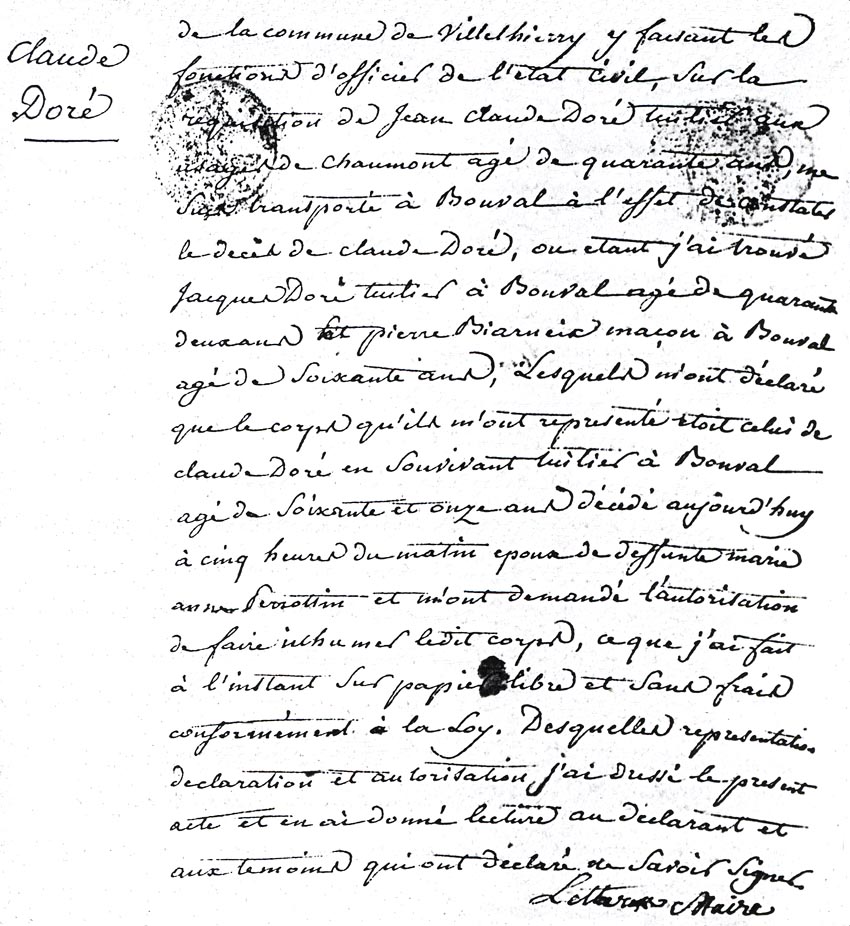 Claude
Doré
de la commune de Villethierry y faisant les
fonctions d'officier de l'état civil, sur la
requisition de Jean Claude Doré tuilier aux
usages de chaumont agé de quarante ans, me
suis transporté à Bonval à l'effet de constater
le decès de claude Doré, ou etant j'ai trouvé
Jacques Doré tuilier à Bonval agé de quarante
deux ans et pierre Biarneix maçon à Bonval
agé de Soixante ans, Lesquels m'ont déclaré
que le corps qu'ils m'ont représenté etoit celui de
claude Doré en Son vivant tuilier à Bonval
agé de Soixante et onze ans décédé aujourd'huy
à cinq heures du matin epoux de deffunte marie
anne Perrottin et m'ont demandé l'autorisation
de faire inhumer ledit corps, ce que j'ai fait
à l'instant Sur papier libre et Sans frais
conformément à la Loy. Desquelles representation
declaration et autorisation j'ai dressé le present
acte et en ai donné lecture au déclarant et
aux temoins qui ont déclaré ne Savoir Signer
Maire